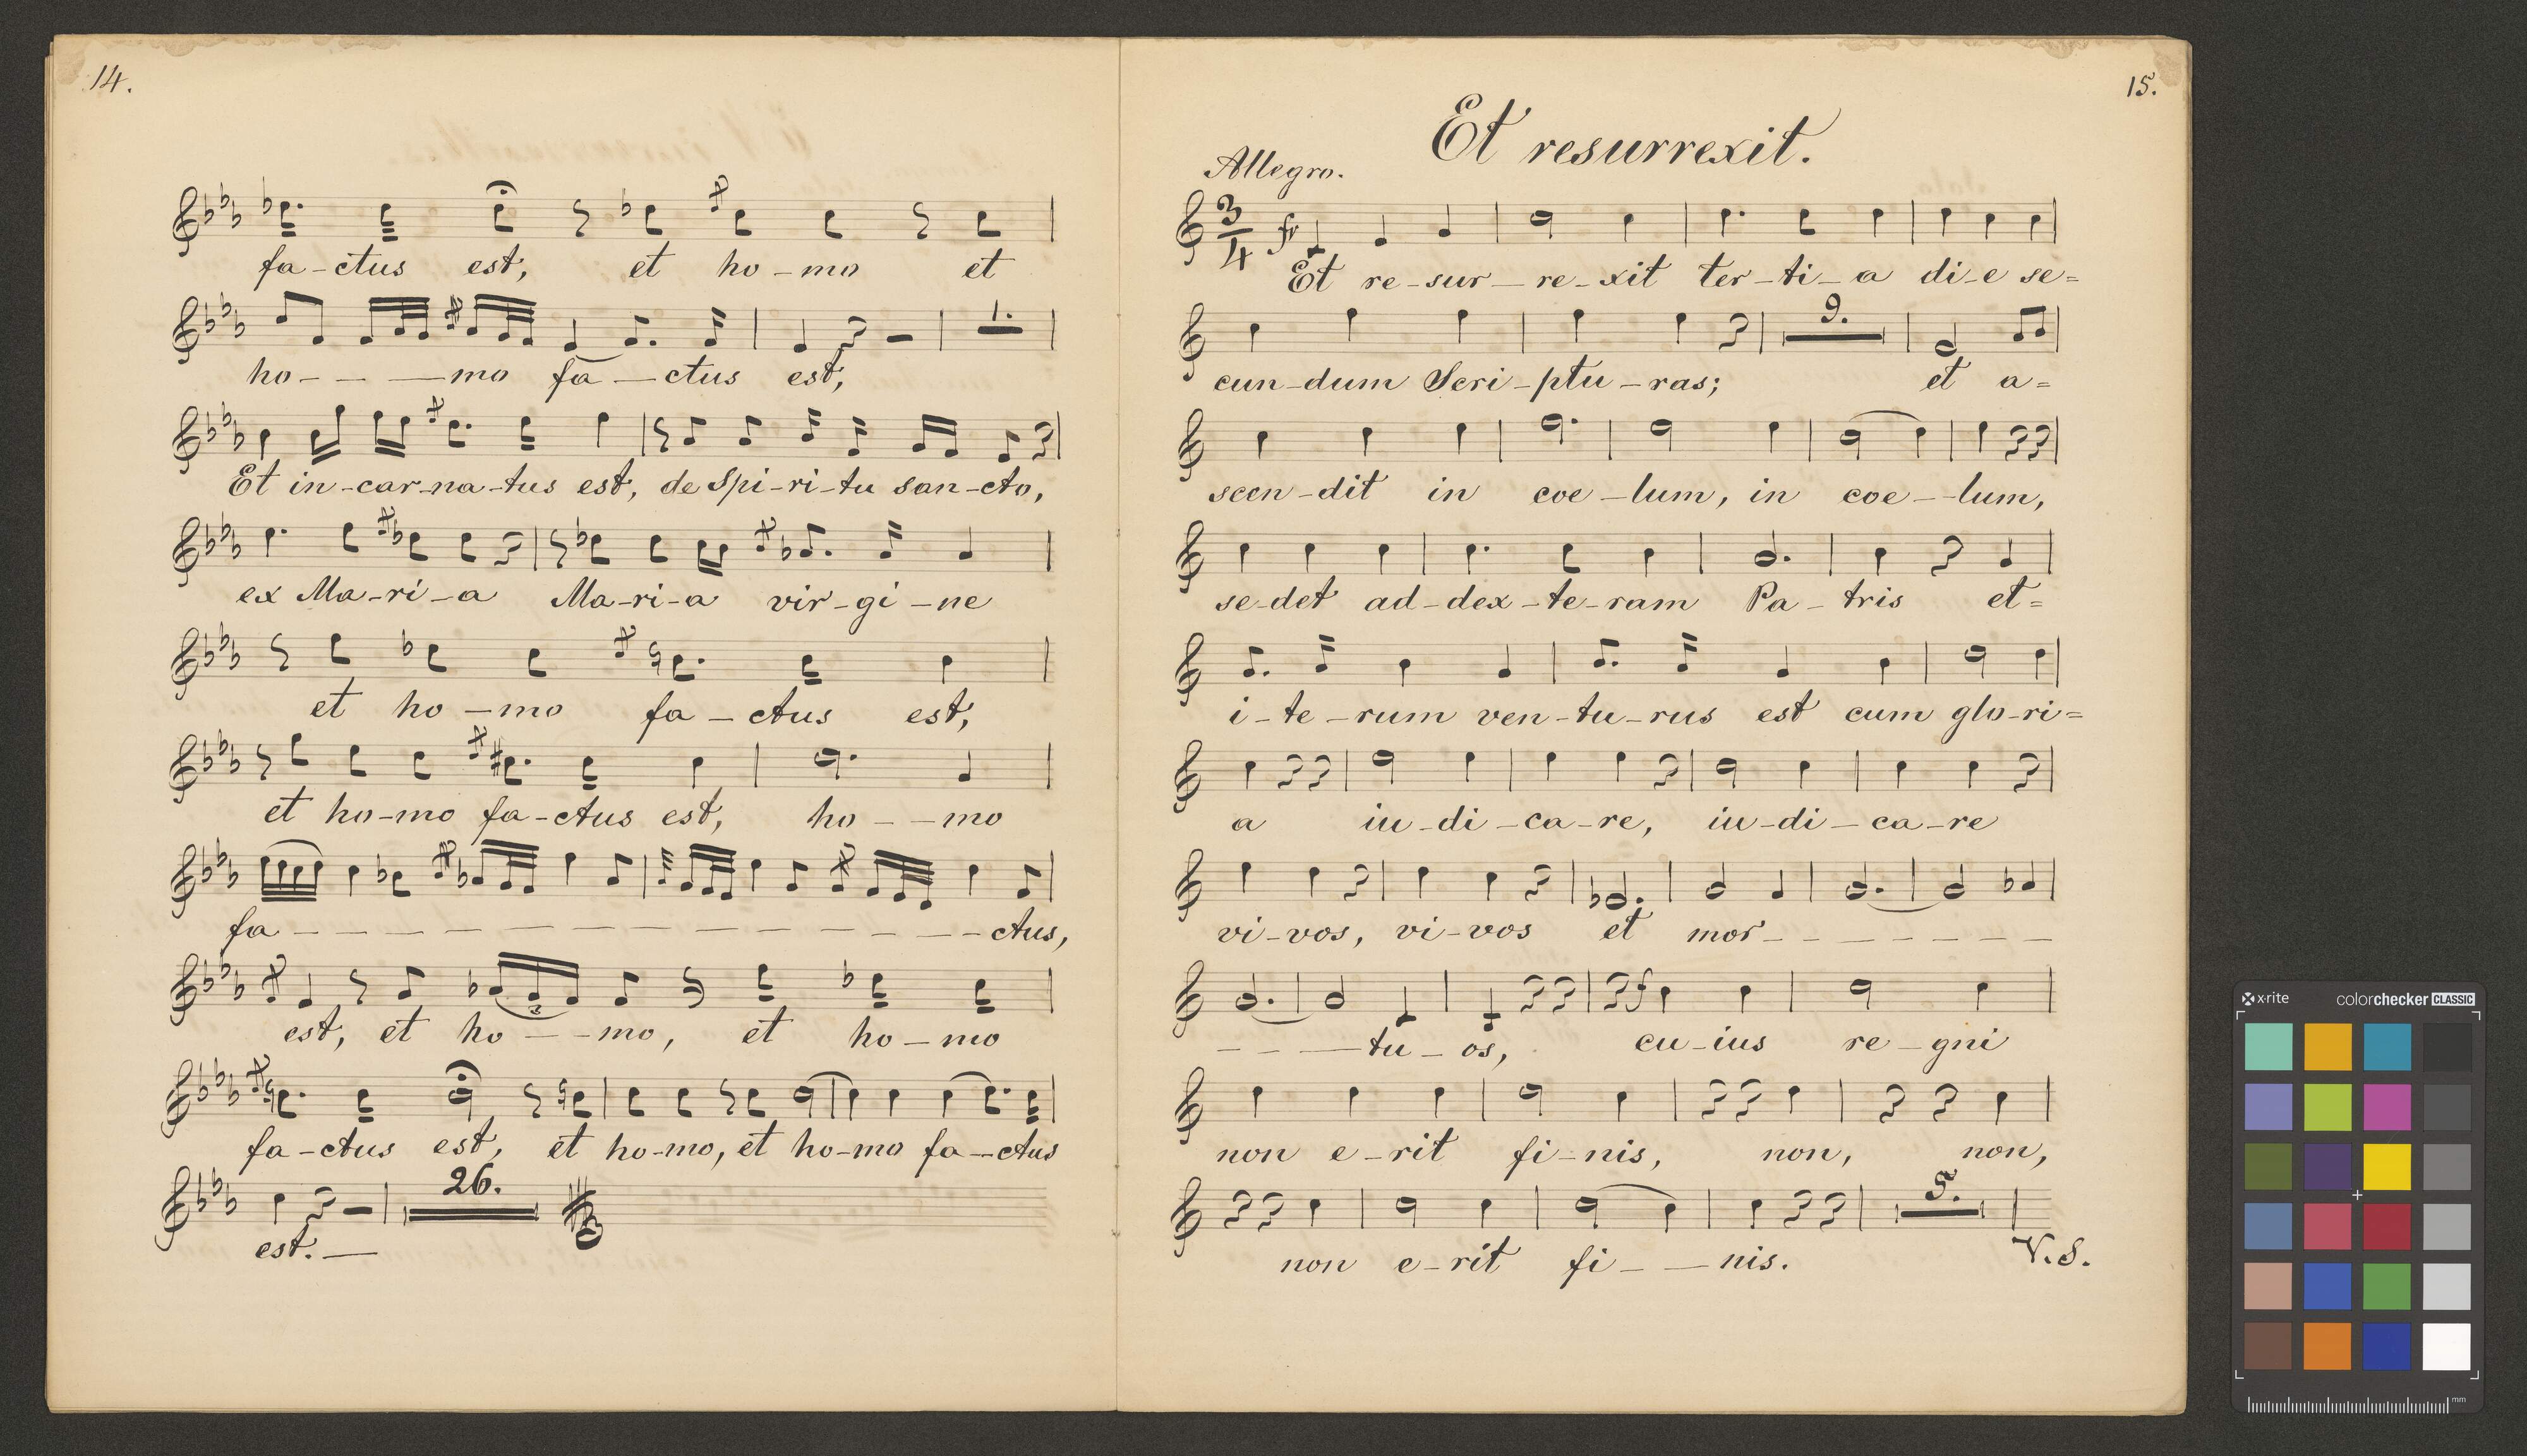 14.
fa-ctus est, et ho-mo et
1.
ho- - -mo fa-ctus est,
Et in-car-na-tus est, de Spi-ri-tu san-cto,
ex Ma-ri-a Ma-ri-a vir-gi-ne
et ho-mo fa-ctus est,
et ho-mo fa-ctus est, ho- -mo
fa- - - - - - - - - - - -ctus,
3
est, et ho- -mo, et ho-mo
fa-ctus est, et ho-mo, et ho-mo fa-ctus
26.
est.-
15.
Et resurrexit.
Allegro.
3
4
f
Et re-sur-re-xit ter-ti-a di-e se=
9.
cun-dum Scri-ptu-ras; et a=
scen-dit in coe-lum, in coe- -lum,
se-det ad-dex-te-ram Pa-tris et=
i-te-rum ven-tu-rus est cum glo-ri=
a iu-di-ca-re, iu-di-ca-re
vi-vos, vi-vos et mor- - - - - - -
f
- - -tu-os, cu-ius re-gni
non e-rit fi-nis, non, non,
5.
non e-rit fi- -nis.
V.S.
x-rite colorchecker CLASSIC
mm